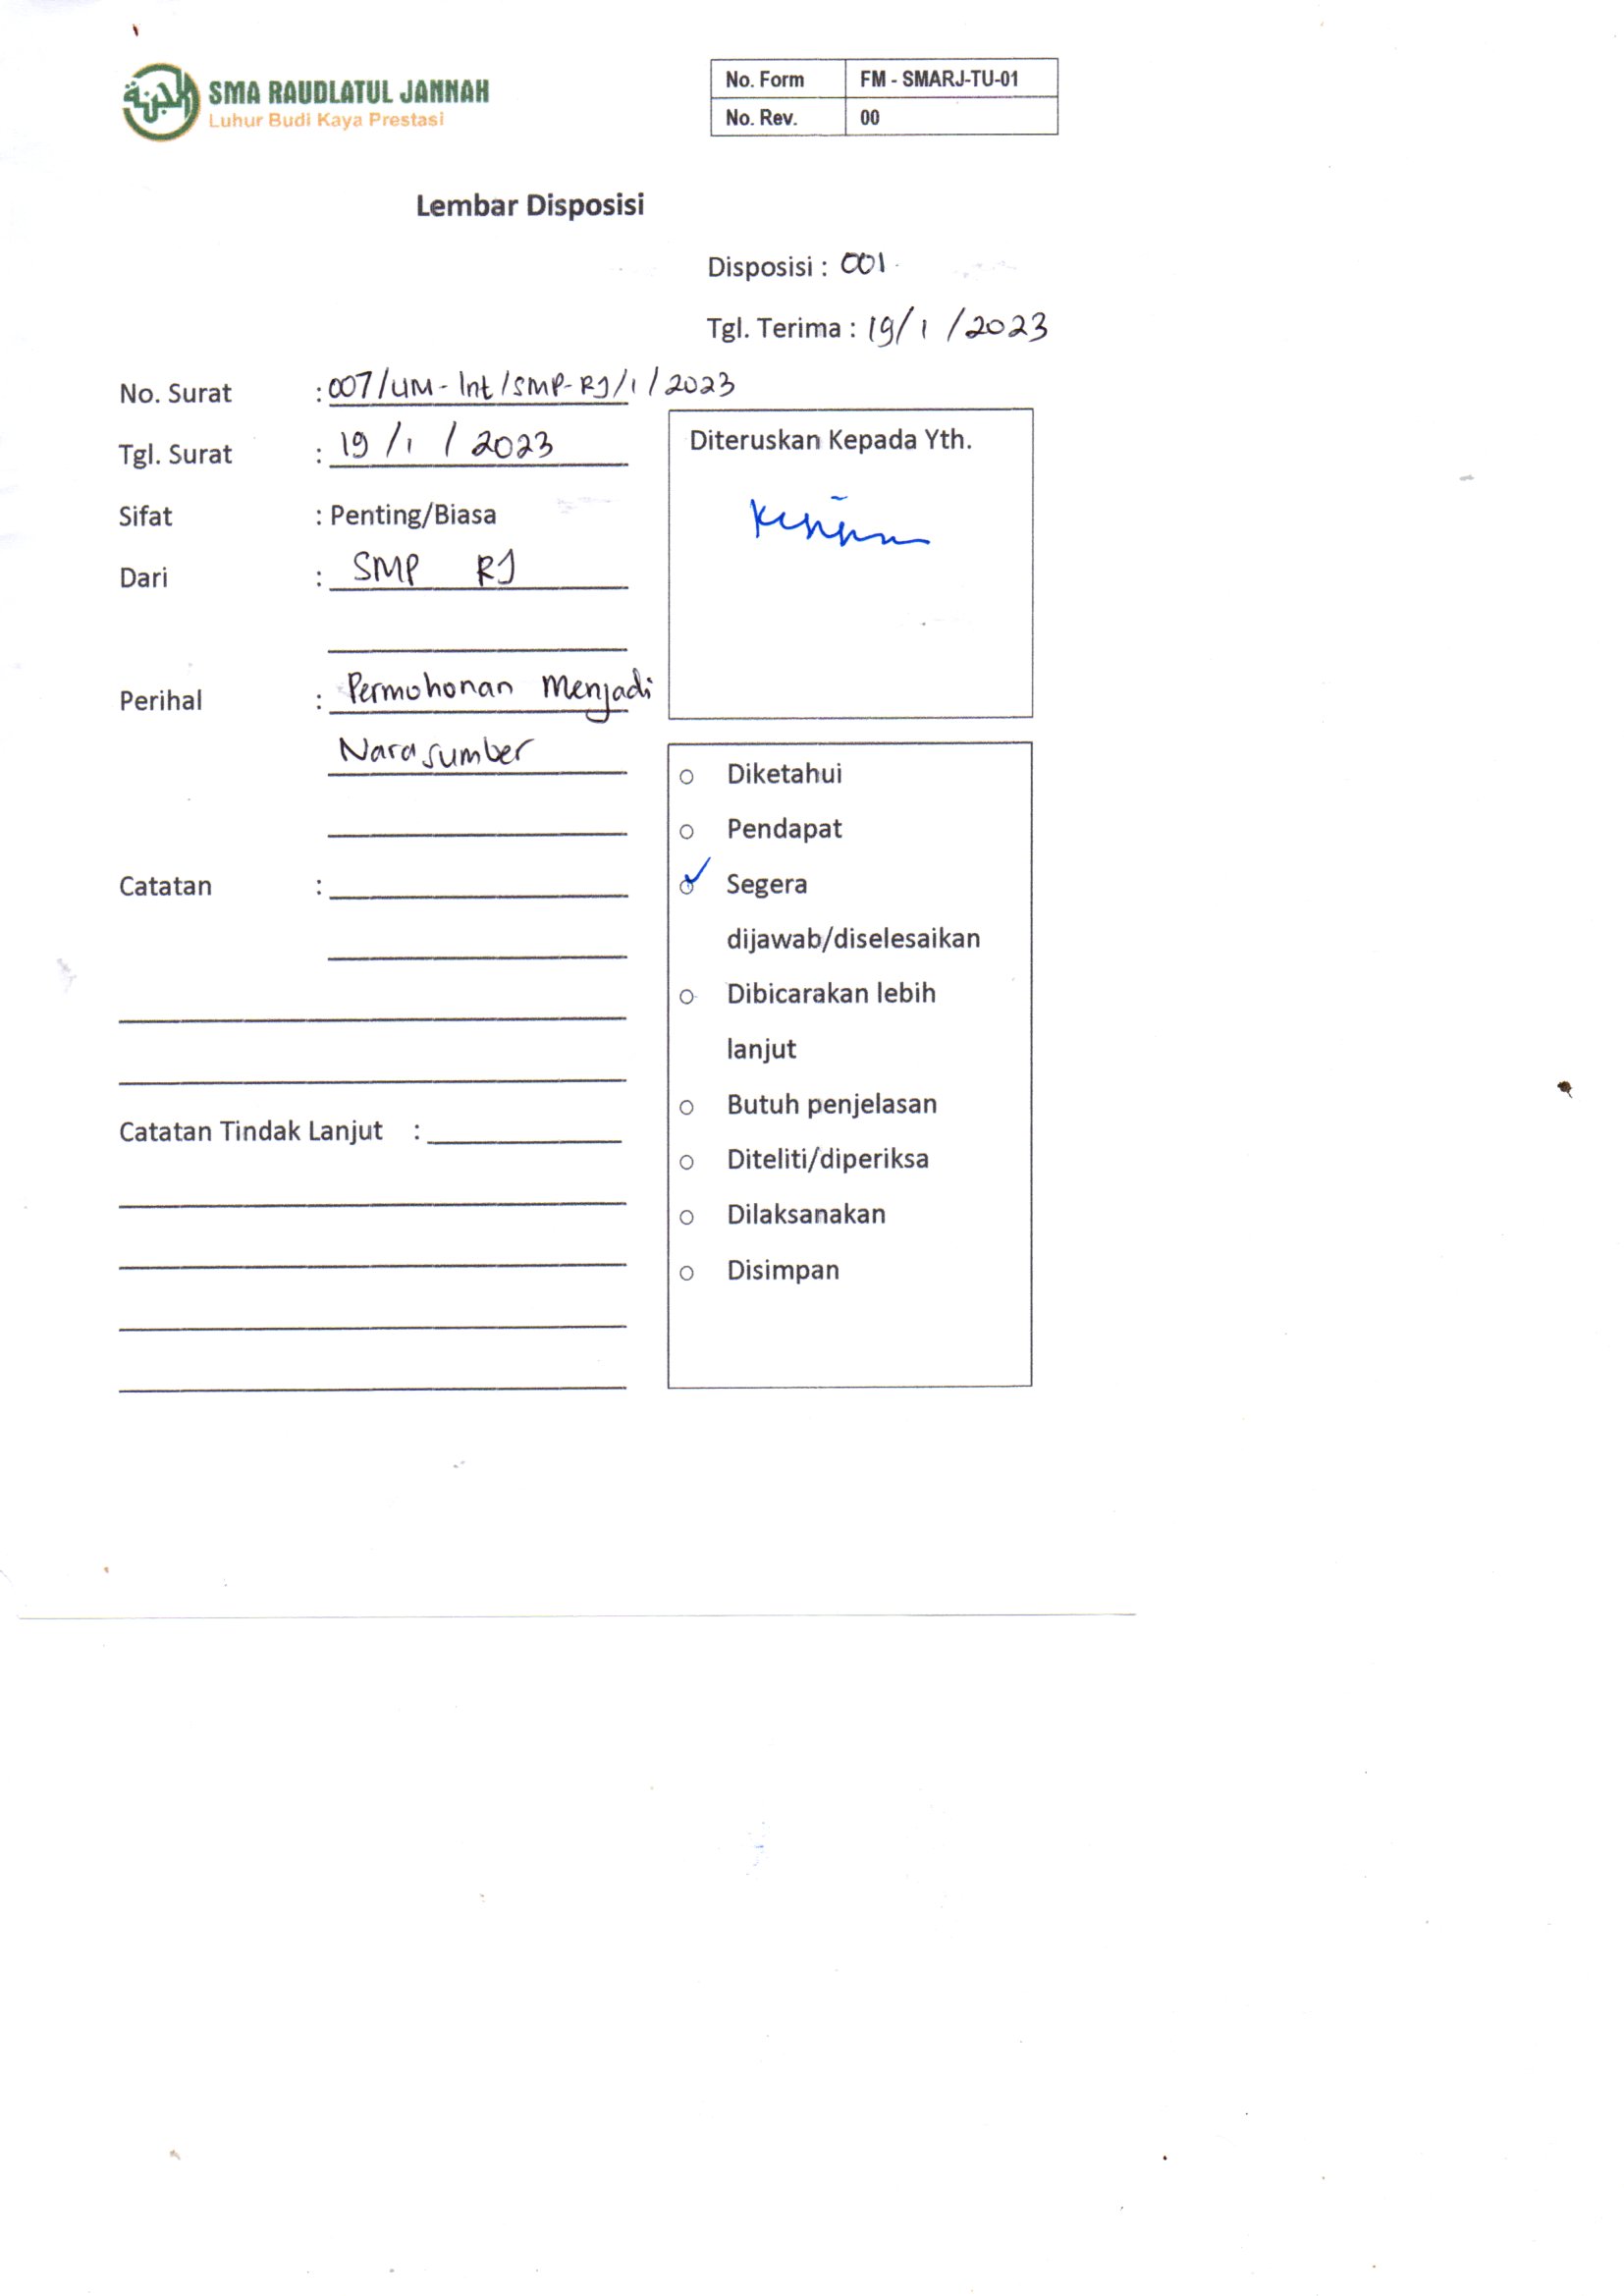 SMA RAUDLATUL JANNAH
Luhur Budi Kaya Prestasi
No. Form FM - SMARJ-TU-01
No. Rev. 00
Lembar Disposisi
Disposisi : 001
Tgl. Terima : 19/1/2023
No. Surat : 007/UM-Int/SMP-RJ/1/2023
Tgl. Surat : 19/1/2023
Sifat : Penting/Biasa
Dari : SMP RJ
Perihal : Permohonan Menjadi
Narasumber
Catatan :
Catatan Tindak Lanjut :
Diteruskan Kepada Yth.
Diketahui
Pendapat
Segera
dijawab/diselesaikan
Dibicarakan lebih
lanjut
Butuh penjelasan
Diteliti/diperiksa
Dilaksanakan
Disimpan